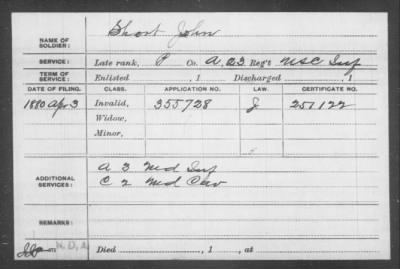 NAME OF SOLDIER: Short John
SERVICE: Late rank, P Co. A, 23 Reg't USC Inf
TERM OF SERVICE: Enlisted , 1 Discharged , 1
DATE OF FILING. CLASS. APPLICATION NO. LAW. CERTIFICATE NO.
1880 Apr 3 Invalid, 355728 J 251122
Widow,
Minor,
ADDITIONAL SERVICES: A 3 Md Inf
C 2 Md Cav
REMARKS:
N.D.A.
Died , 1 , at